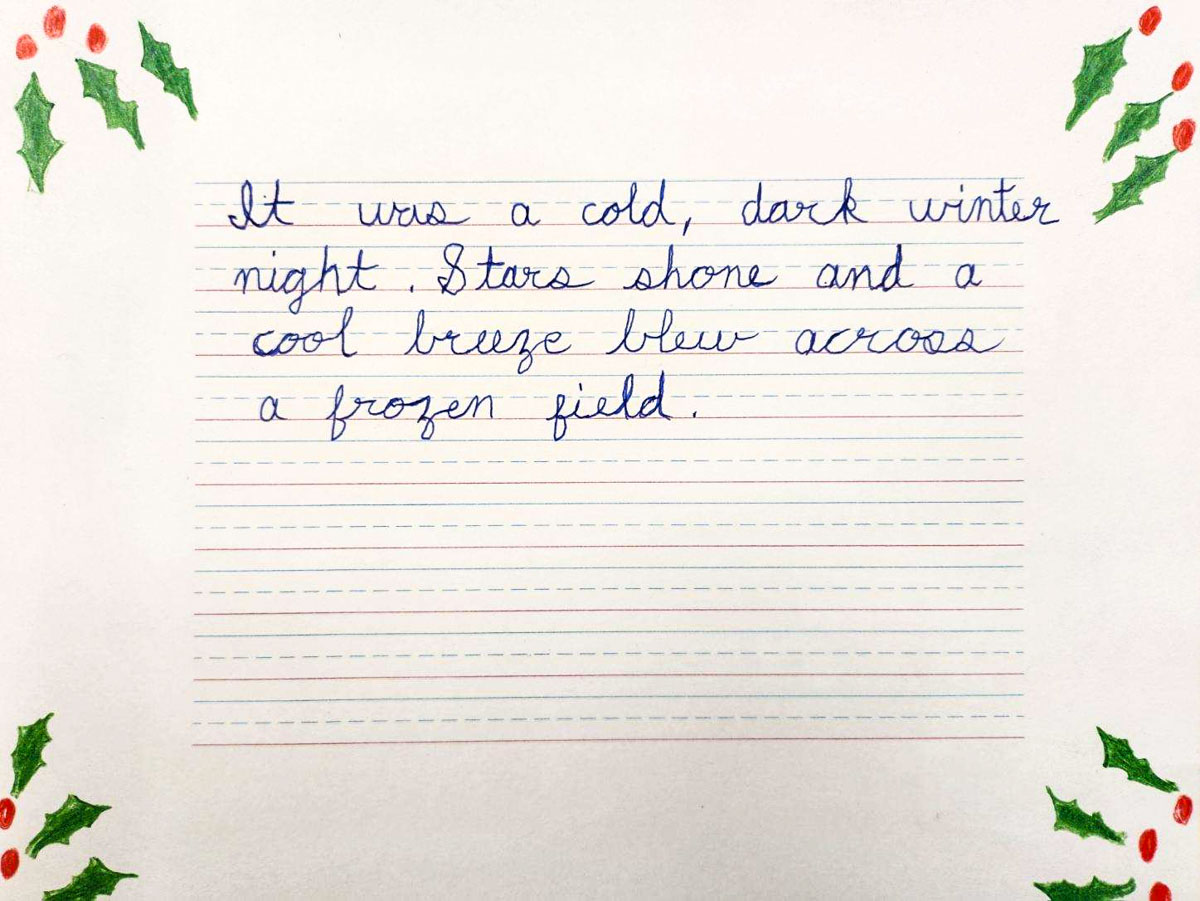 It was a cold, dark winter
night. Stars shone and a
cool breeze blew across
a frozen field.